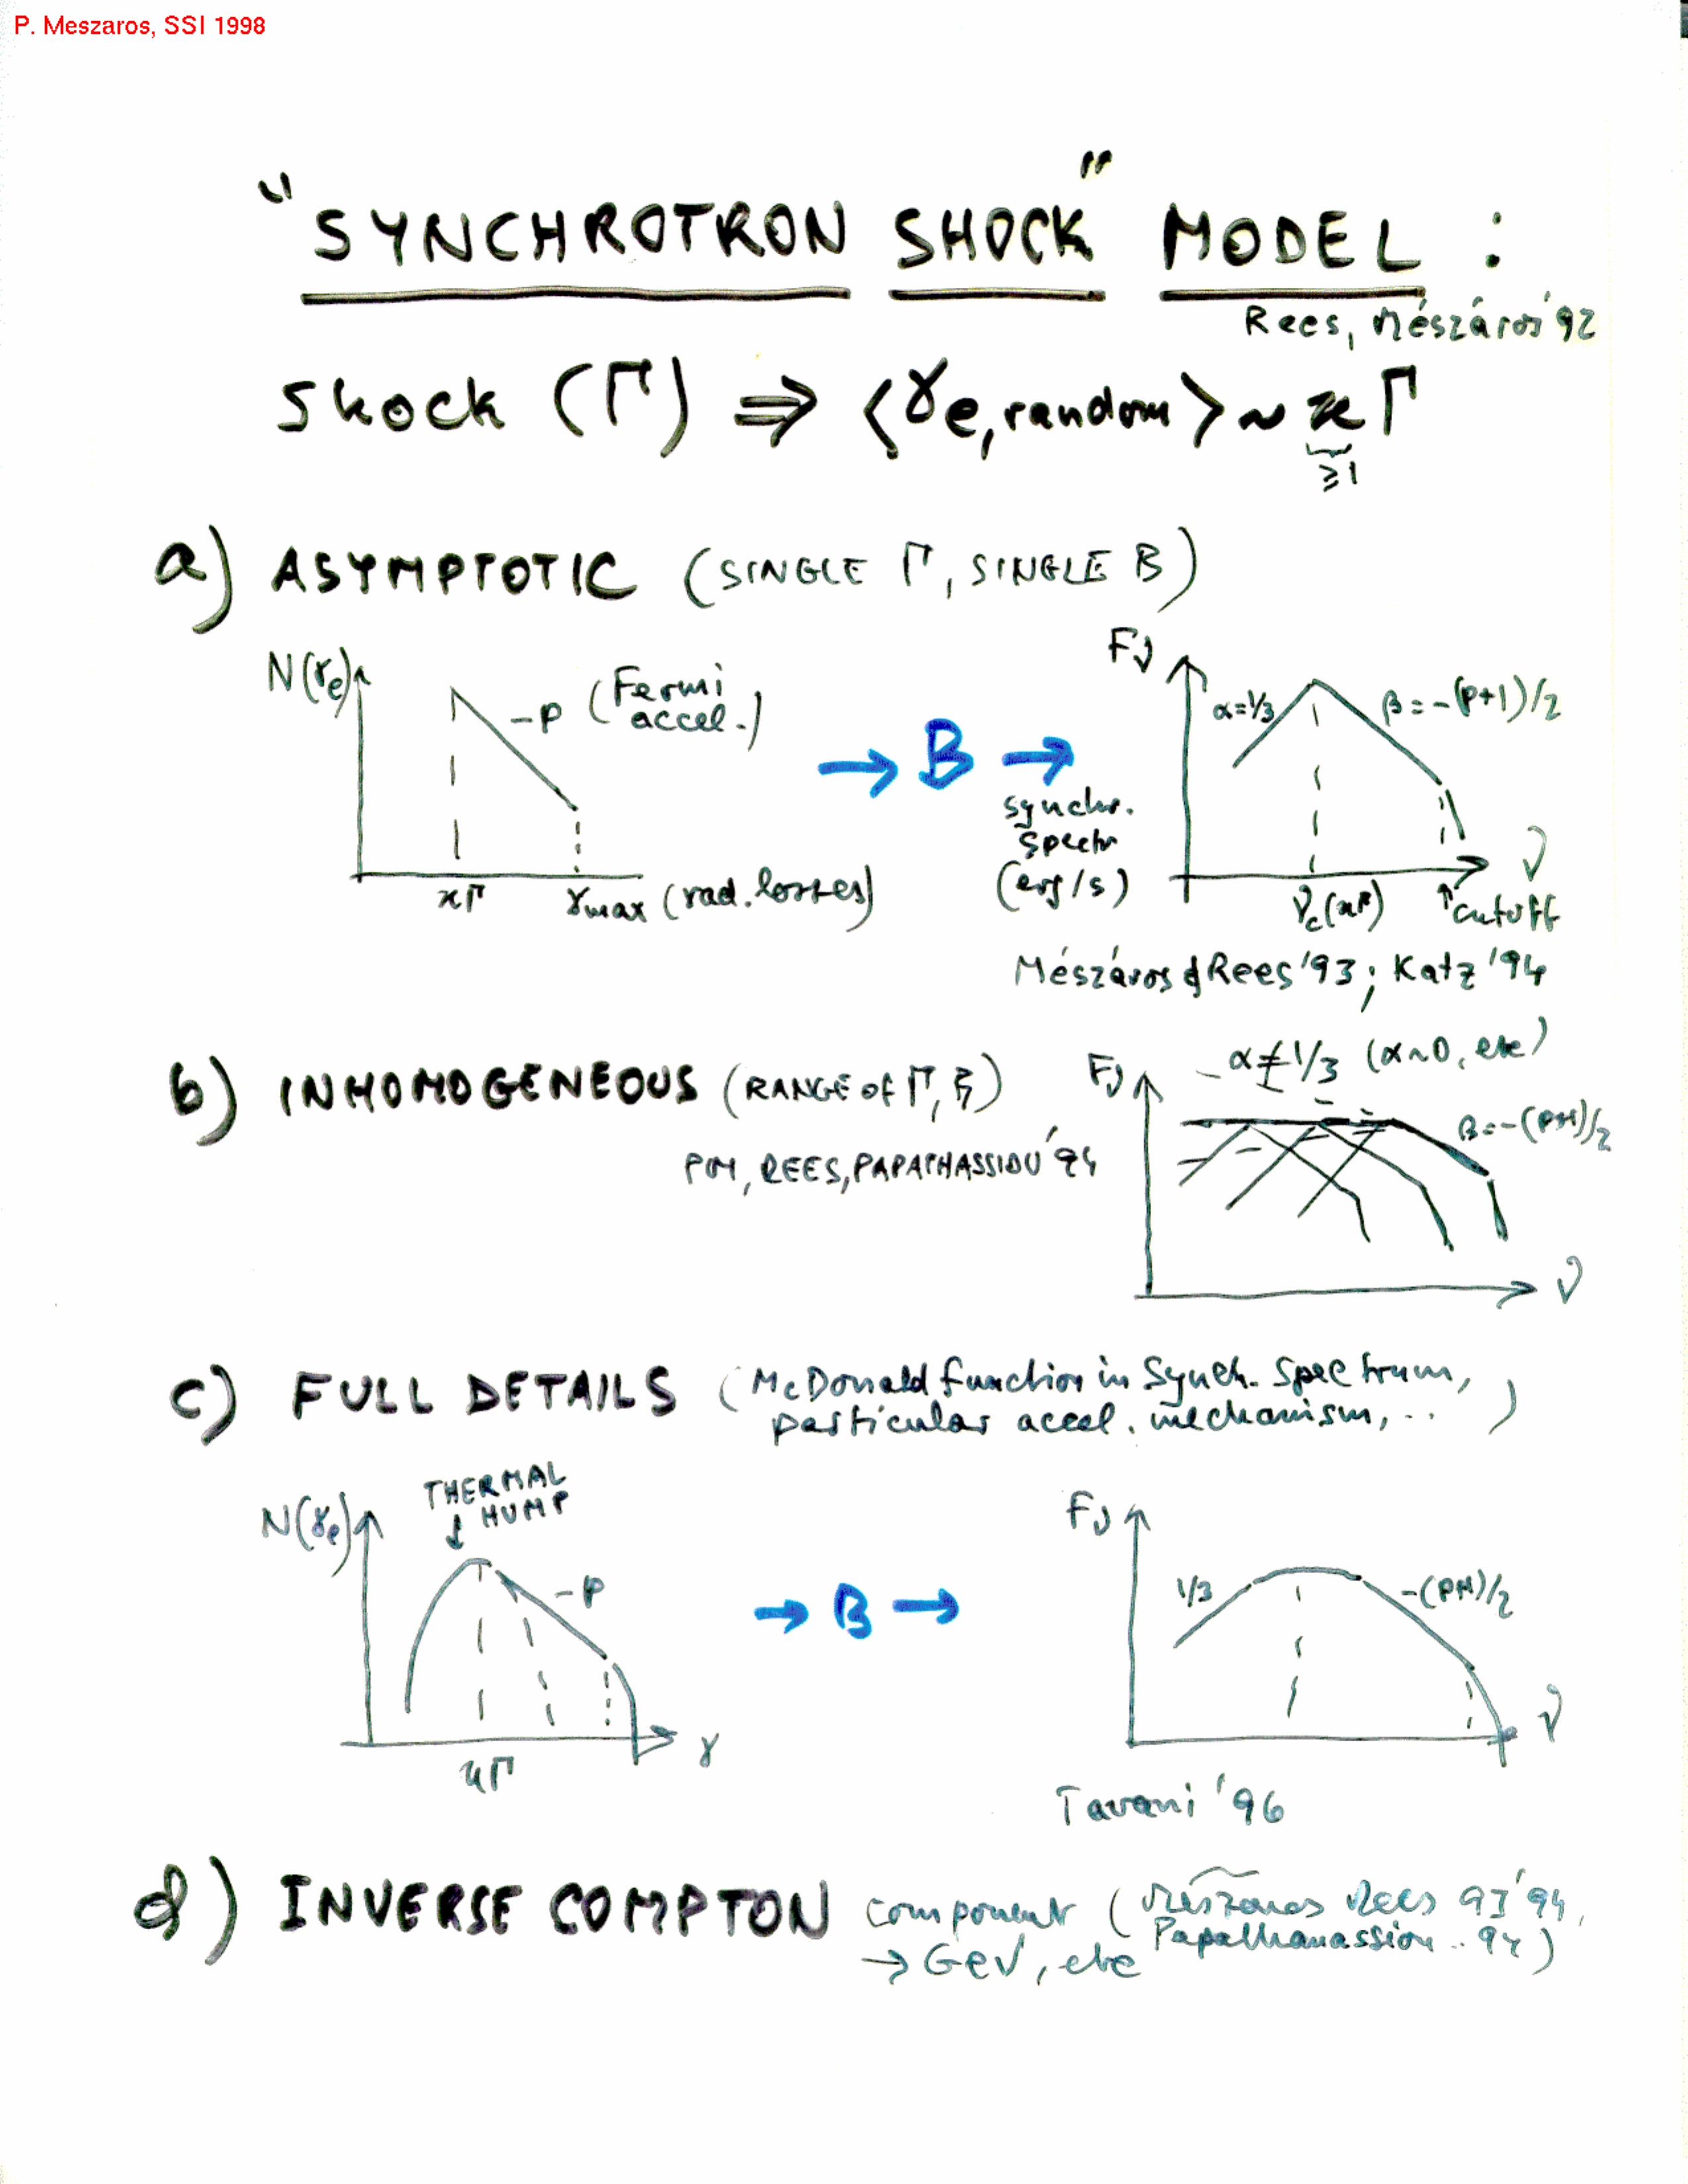 P. Meszaros, SSI 1998
"SYNCHROTRON SHOCK" MODEL :
Rees, Mészáros '92
Shock (Γ) ⇒ ⟨γe,random⟩ ~ ϰ Γ
≥1
a) ASYMPTOTIC (SINGLE Γ, SINGLE B)
N(γe)
-p (Fermi accel.)
ϰΓ
γmax (rad. losses)
→ B →
synchr.
spectr
(erg/s)
Fν
α=1/3
β=-(p+1)/2
ν
νc(ϰΓ)
↑cutoff
Mészáros & Rees '93; Katz '94
b) INHOMOGENEOUS (RANGE OF Γ, B)
PM, REES, PAPATHASSIOU '94
Fν
α≠1/3 (α~0, etc)
β=-(p+1)/2
ν
c) FULL DETAILS (McDonald function in Synch. Spectrum,
particular accel. mechanism, .. )
N(γe)
THERMAL
HUMP
-p
ϰΓ
γ
→ B →
Fν
1/3
-(p+1)/2
ν
Tavani '96
d) INVERSE COMPTON component (Mészáros Rees 93 '94,
→ GeV, etc Papathanassiou .. 94)